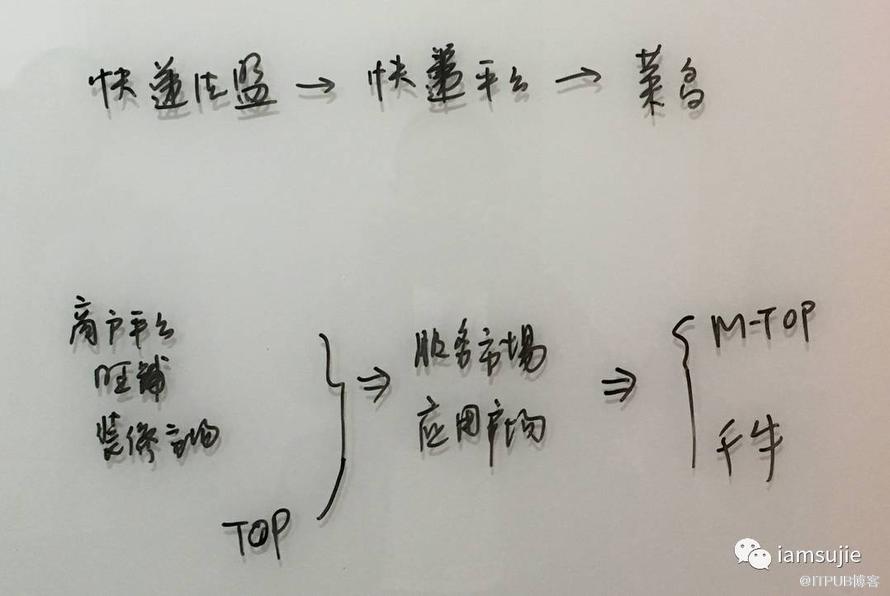 快递盟 → 快递平台 → 菜鸟
商户平台
旺铺
装修市场
TOP
⇒ 服务市场
应用市场
⇒ M-TOP
千牛
iamsujie
@ITPUB博客